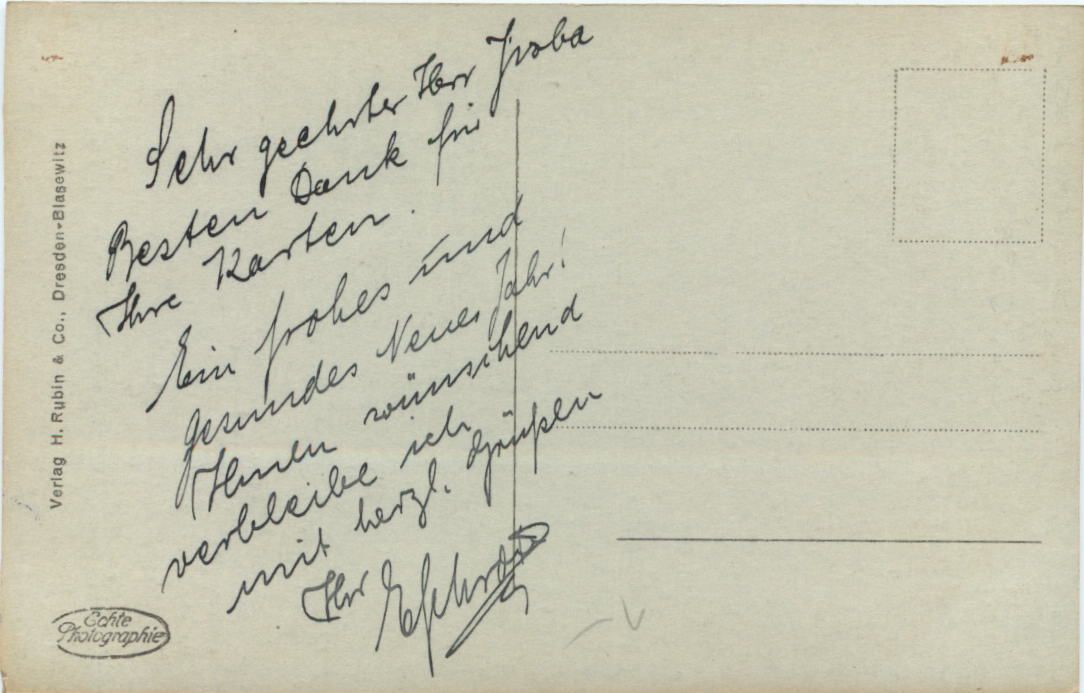 Sehr geehrter Herr
Besten Dank für
Ihre Karten.
Ein frohes und
gesundes Neues Jahr!
Ihnen wünschend
verbleibe ich
mit herzl. Grüßen
Ihr
Verlag H. Rubin & Co., Dresden-Blasewitz
Echte
Photographie